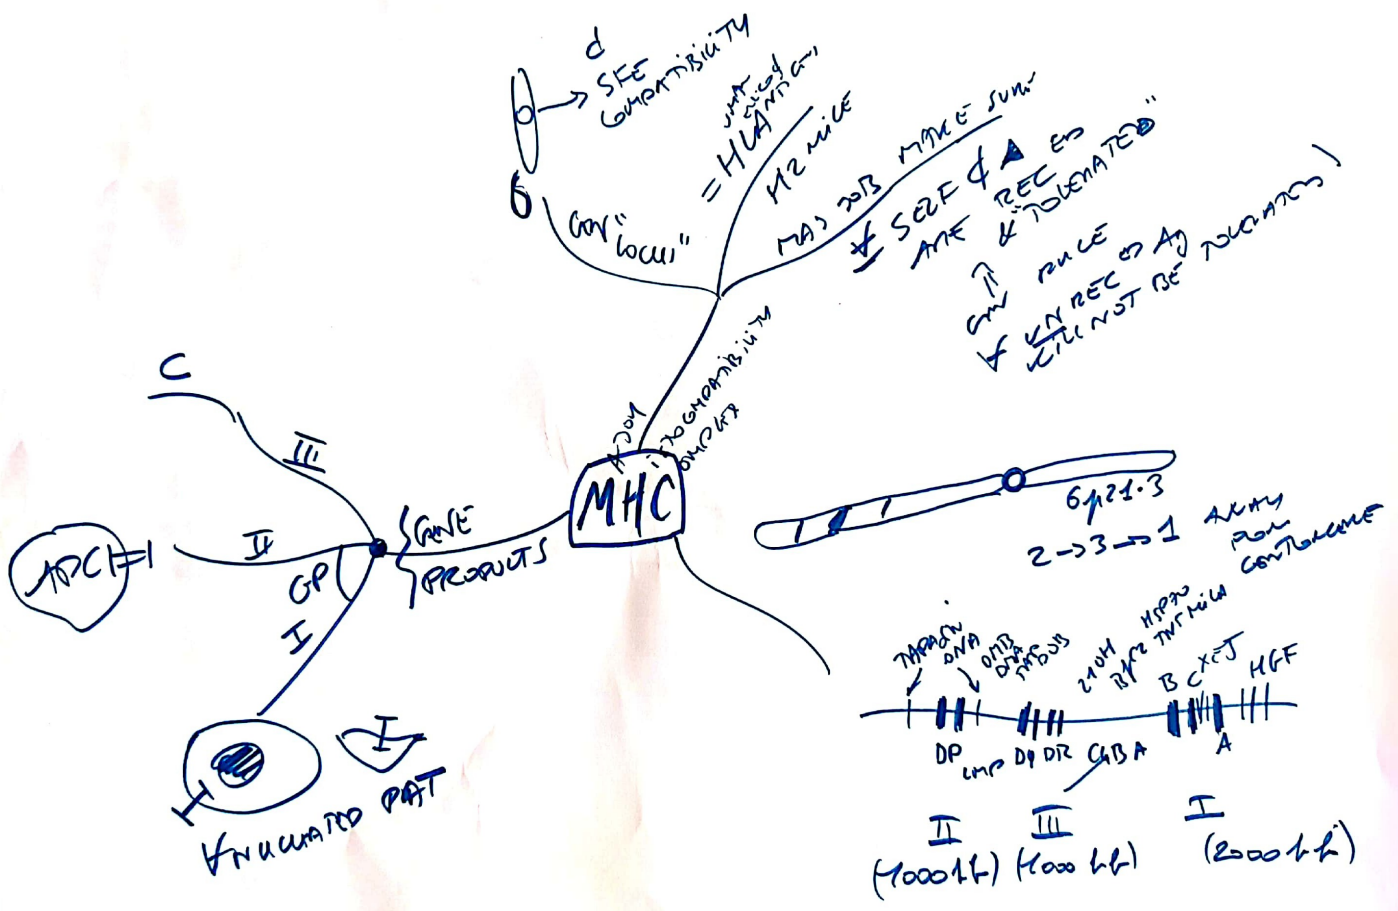 d
SEE
COMPATIBILITY
6
GEN "LOCUS"
= HLA
ANTIGEN
H2 MICE
HAS JOB MAKE SURE
∀ SELF
ARE REC ED
& "TOLERATED"
RULE
∀ UNREC ED Ag
WILL NOT BE TOLERATED
MAJOR
HISTOCOMPATIBILITY
COMPLEX
MHC
GENE
PRODUCTS
C
III
II
APC
GP
I
I
∀ NUCLEATED
PLAT
6p21.3
2→3→1
AWAY
FROM
CENTROMERE
TAPASIN
DNA
DMB
DMA
21OH
Bf C2
HSP70
TNF MICA
B C X E J
HGF
DP
LMP
DQ DR
C4B A
A
II
III
I